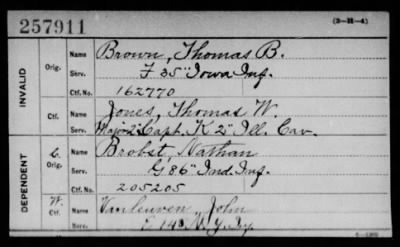 257911
(3-H-4)
INVALID
Orig. Name Brown, Thomas B.
Serv. F 35" Iowa Inf.
Ctf. No. 162770
Ctf. Name Jones, Thomas W.
Serv. Major 2" Capt. K 2" Ill. Cav.
DEPENDENT
C. Orig. Name Brobst, Nathan
Serv. G 86" Ind. Inf.
Ctf. No. 205205
W. Ctf. Name Vanleuven, John
Serv. N.Y.